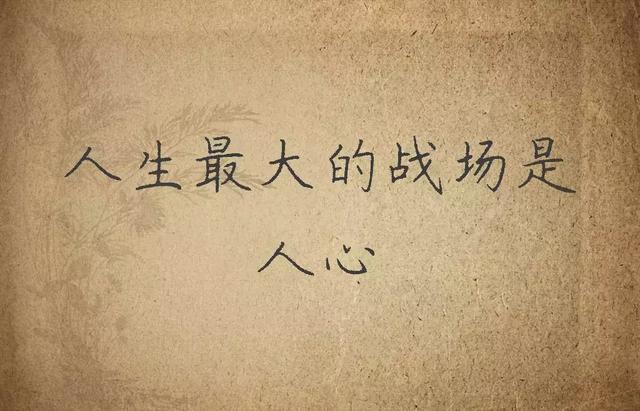 人生最大的战场是
人心